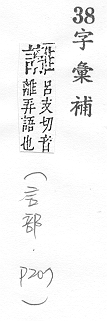 38字彙補
呂支切音
離弄語也
(言部．P207)